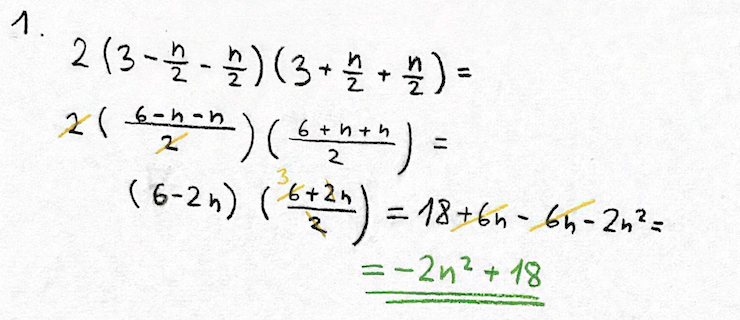 1.
2(3 - n/2 - n/2)(3 + n/2 + n/2) =
2( (6-n-n)/2 )( (6+n+n)/2 ) =
(6-2n) ( 3 (6+2n)/2 ) = 18 + 6n - 6n - 2n² =
= -2n² + 18